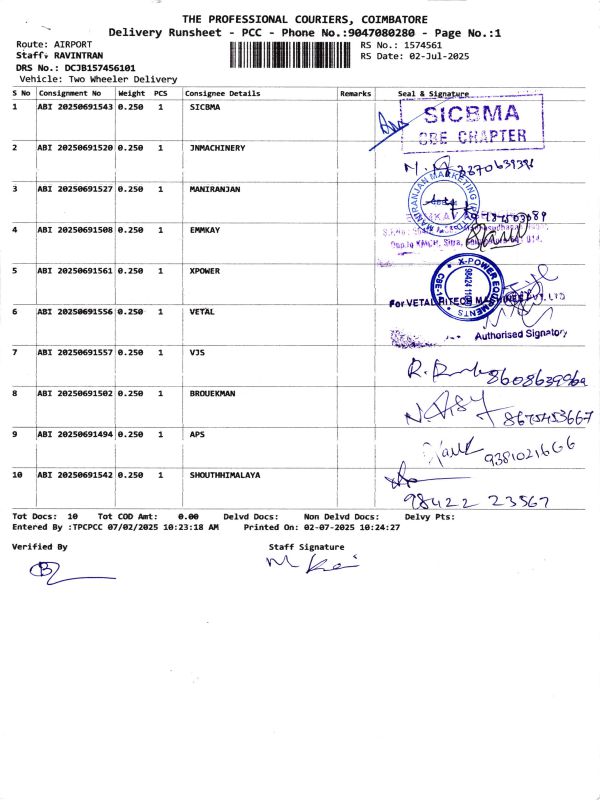 THE PROFESSIONAL COURIERS, COIMBATORE
Delivery Runsheet - PCC - Phone No.:9047080280 - Page No.:1
Route: AIRPORT
RS No.: 1574561
Staff: RAVINTRAN
RS Date: 02-Jul-2025
DRS No.: DCJB157456101
Vehicle: Two Wheeler Delivery
S No Consignment No Weight PCS Consignee Details Remarks Seal & Signature
1 ABI 20250691543 0.250 1 SICBMA
SICBMA
CBE CHAPTER
2 ABI 20250691520 0.250 1 JNMACHINERY
3 ABI 20250691527 0.250 1 MANIRANJAN
MANIRANJAN MARKETING
4 ABI 20250691508 0.250 1 EMMKAY
5 ABI 20250691561 0.250 1 XPOWER
X-POWER EQUIPMENTS
CBE-1
6 ABI 20250691556 0.250 1 VETAL
Authorised Signatory
7 ABI 20250691557 0.250 1 VJS
8 ABI 20250691502 0.250 1 BROUEKMAN
8675453667
9 ABI 20250691494 0.250 1 APS
9381021666
10 ABI 20250691542 0.250 1 SHOUTHHIMALAYA
98422 23567
Tot Docs: 10 Tot COD Amt: 0.00 Delvd Docs: Non Delvd Docs: Delvy Pts:
Entered By :TPCPCC 07/02/2025 10:23:18 AM Printed On: 02-07-2025 10:24:27
Verified By
Staff Signature